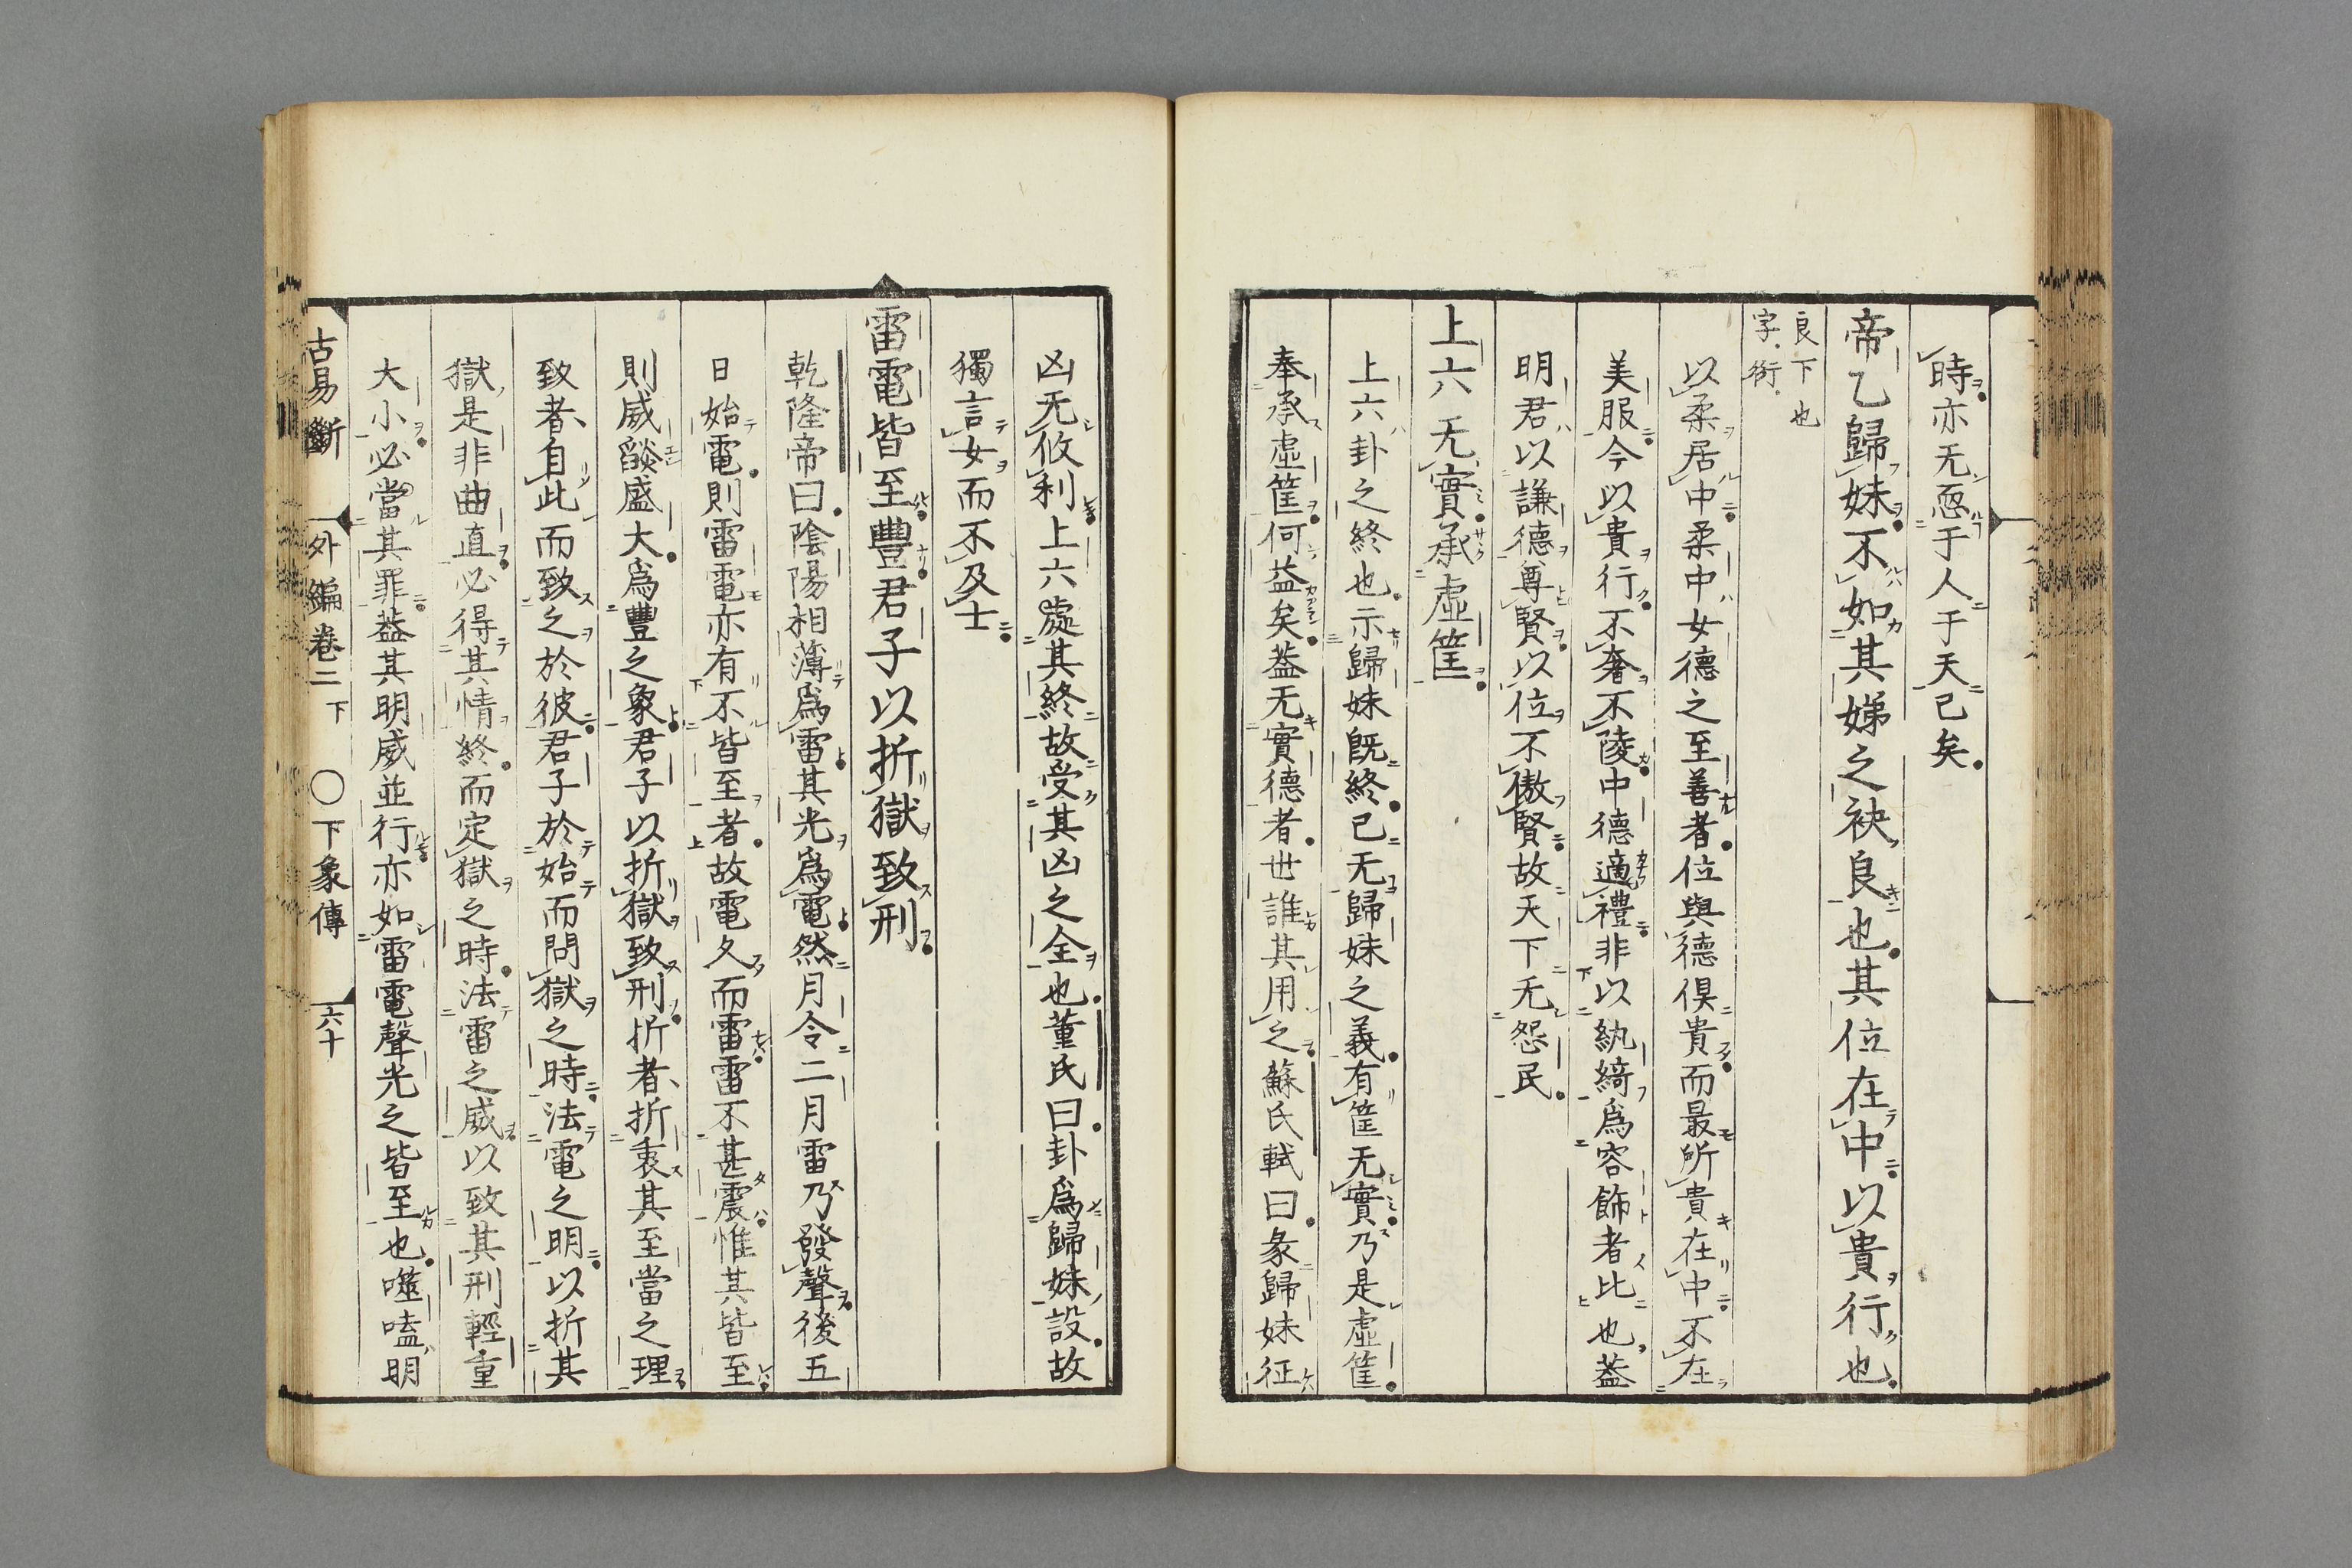 時亦无惡于人于天已矣
帝乙歸妹不如其娣之袂良也其位在中以貴行也
良下也
字衍
以柔居中柔中女德之至善者位與德俱貴而最所貴在中不在
美服今以貴行不奢不陵中德適禮非以紈綺爲容飾者比也葢
明君以謙德尊賢以位不傲賢故天下无怨民
上六无實承虛筐
上六卦之終也示歸妹既終已无歸妹之義有筐无實乃是虛筐
奉承虛筐何益矣葢无實德者世誰其用之蘇氏軾曰彖歸妹征
凶无攸利上六處其終故受其凶之全也董氏曰卦爲歸妹設故
獨言女而不及士
雷電皆至豐君子以折獄致刑
乾隆帝曰陰陽相薄爲雷其光爲電然月令二月雷乃發聲後五
日始電則雷電亦有不皆至者故電久而雷雷不甚震惟其皆至
則威燄盛大爲豐之象君子以折獄致刑折者折衷其至當之理
致者自此而致之於彼君子於始而問獄之時法電之明以折其
獄是非曲直必得其情終而定獄之時法雷之威以致其刑輕重
大小必當其罪葢其明威並行亦如雷電聲光之皆至也噬嗑明
古易斷 外編卷二下 〇下象傳 六十